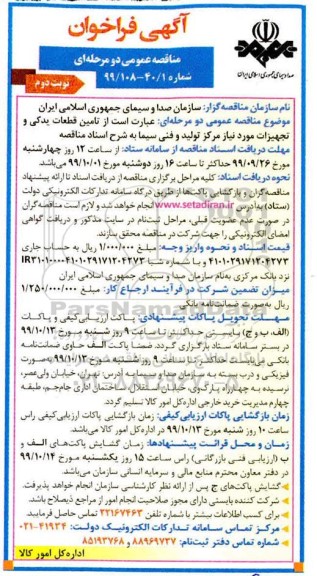 آگهی فراخوان
مناقصه عمومی دو مرحله‌ای
شماره ۴۰/۱-۹۹/۱۰۸
نوبت دوم
صدا و سیمای جمهوری اسلامی ایران
نام سازمان مناقصه‌گزار: سازمان صدا و سیمای جمهوری اسلامی ایران
موضوع مناقصه عمومی دو مرحله‌ای: عبارت است از تامین قطعات یدکی و
تجهیزات مورد نیاز مرکز تولید و فنی سیما به شرح اسناد مناقصه
مهلت دریافت اسناد مناقصه از سامانه ستاد: از ساعت ۱۲ روز چهارشنبه
مورخ ۹۹/۰۹/۲۶ حداکثر تا ساعت ۱۶ روز دوشنبه مورخ ۹۹/۱۰/۰۱ می‌باشد.
نحوه دریافت اسناد: کلیه مراحل برگزاری مناقصه از دریافت اسناد تا ارائه پیشنهاد
مناقصه‌گران و بازگشایی پاکت‌ها از طریق درگاه سامانه تدارکات الکترونیکی دولت
(ستاد) به آدرس www.setadiran.ir انجام خواهد شد و لازم است مناقصه‌گران
در صورت عدم عضویت قبلی، مراحل ثبت‌نام در سایت مذکور و دریافت گواهی
امضای الکترونیکی را جهت شرکت در مناقصه محقق سازند.
قیمت اسناد و نحوه واریز وجه: مبلغ ۱/۰۰۰/۰۰۰ ریال به حساب جاری
۴۱۰۱۰۲۹۱۷۱۲۰۴۲۷۳ و یا شماره شبا
نزد بانک مرکزی به‌نام سازمان صدا و سیمای جمهوری اسلامی ایران
میزان تضمین شرکت در فرآیند ارجاع کار: مبلغ ۱/۲۵۰/۰۰۰/۰۰۰
ریال به‌صورت ضمانت‌نامه بانکی
مهلت تحویل پاکات پیشنهادی: پاکت ارزیابی کیفی و پاکات
(الف، ب و ج) بایستی حداکثر تا ساعت ۹ روز شنبه مورخ ۹۹/۱۰/۱۳
در بستر سامانه ستاد بارگزاری گردد. ضمنا پاکت الف حاوی ضمانت‌نامه
بانکی می‌بایست حداکثر تا ساعت ۹ روز شنبه مورخ ۹۹/۱۰/۱۳ به‌صورت
فیزیکی و درب بسته به سازمان صدا و سیما به آدرس: تهران، خیابان ولی‌عصر،
نرسیده به چهارراه پارک‌وی، خیابان هتل استقلال، ساختمان اداری جام‌جم، طبقه
چهارم مدیریت خرید خارجی اداره کل امور کالا تسلیم گردد.
زمان بازگشایی پاکات ارزیابی‌کیفی: زمان بازگشایی پاکات ارزیابی‌کیفی راس
ساعت ۱۰ روز شنبه مورخ ۹۹/۱۰/۱۳ در اداره کل امور کالا می‌باشد.
زمان و محل قرائت پیشنهادها: زمان گشایش پاکت‌های الف و
ب (ارزیابی فنی بازرگانی) راس ساعت ۱۵ روز یکشنبه مورخ ۹۹/۱۰/۱۴
در دفتر معاون محترم منابع مالی و سرمایه انسانی سازمان می‌باشد.
گشایش پاکت‌های ج پس از ارائه نظر کارشناسی سازمان انجام خواهد پذیرفت.
شرکت کننده بایستی دارای مجوز صلاحیت انجام امور از مراجع ذیصلاح باشد.
برای کسب اطلاعات بیشتر با شماره تلفن ۲۲۱۶۷۴۶۳ تماس حاصل فرمایید.
مرکز تماس سامانه تدارکات الکترونیک دولت: ۴۱۹۳۴-۰۲۱
شماره تماس دفتر ثبت‌نام: ۸۸۹۶۹۷۳۷ و ۸۵۱۹۳۷۶۸
اداره‌کل امور کالا